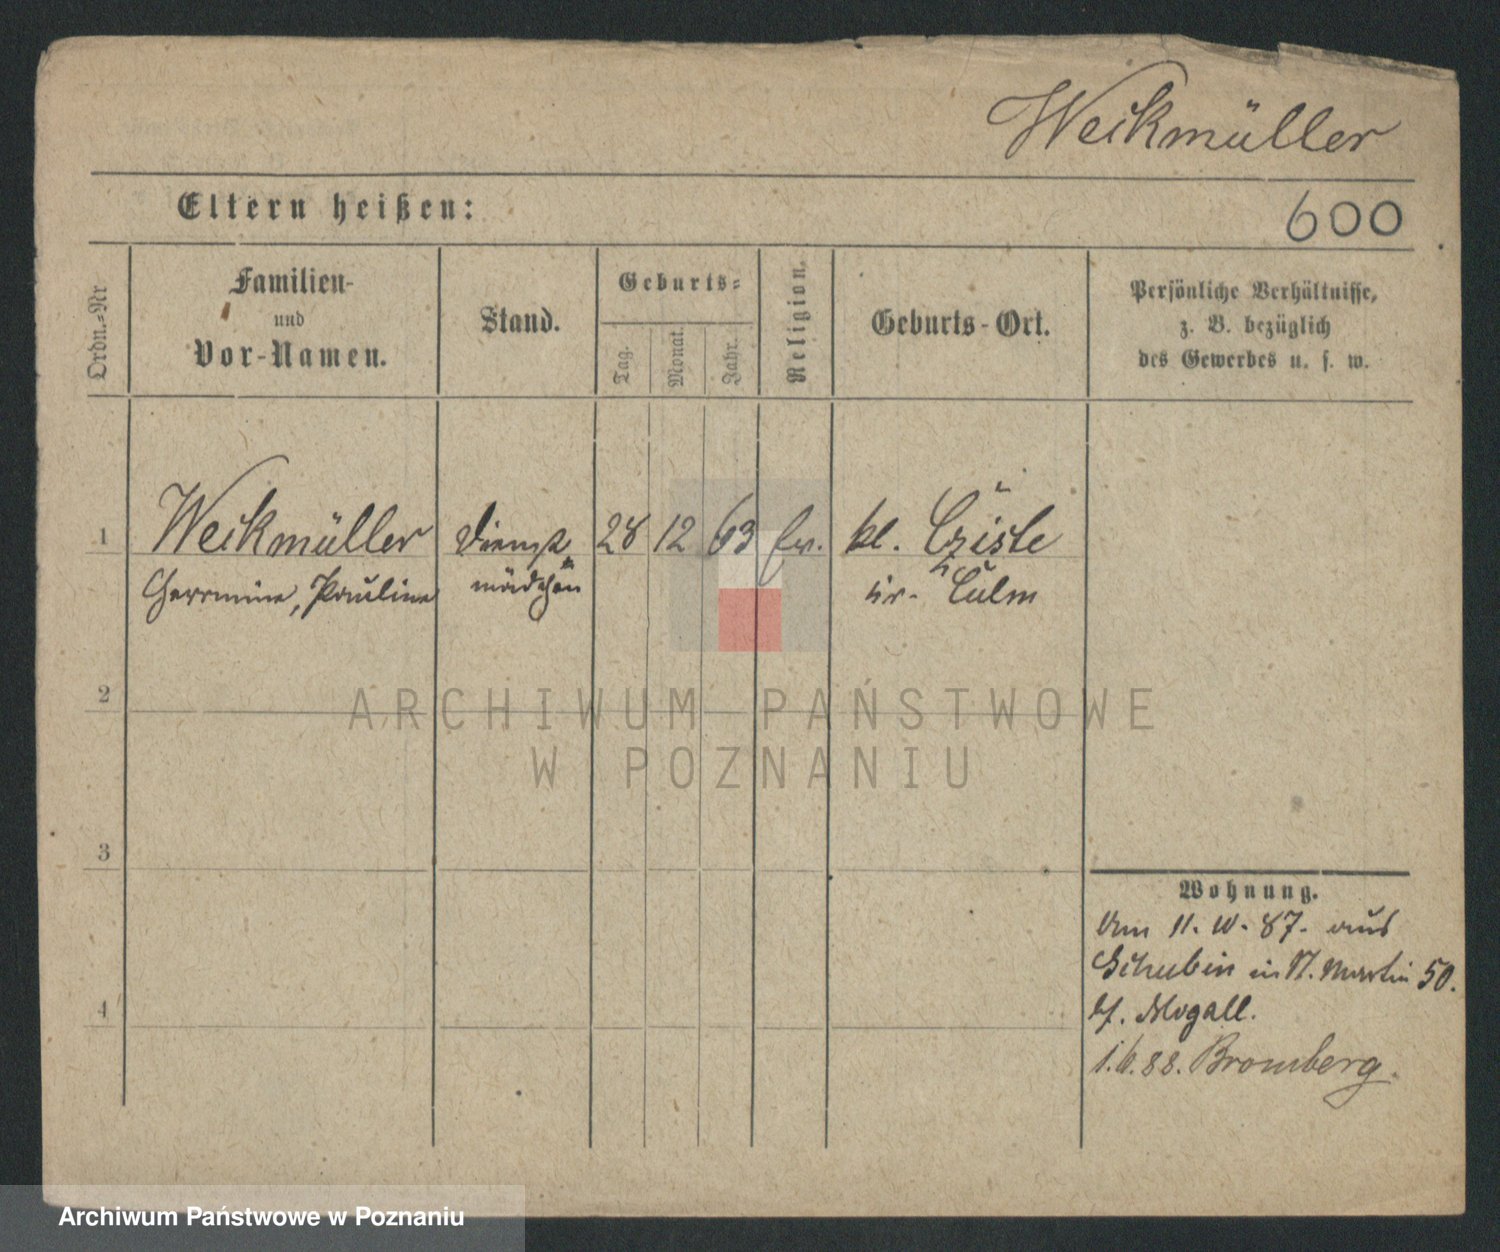 Weikmüller
Eltern heißen:
600
Ordn.=Nr
Familien-
und
Vor-Namen.
Stand.
Geburts=
Tag.
Monat.
Jahr.
Religion.
Geburts-Ort.
Persönliche Verhältnisse,
z. B. bezüglich
des Gewerbes u. s. w.
1 Weikmüller Dienst 28 12 63 ev. kl. Cziste
Herrmine, Pauline mädchen kr. Culm
2
ARCHIWUM PAŃSTWOWE
W POZNANIU
3
Wohnung.
Am 11. 10. 87. aus
Schubin in St. Martin 50.
b/. Mogall.
4
1.6.88. Bromberg.
Archiwum Państwowe w Poznaniu